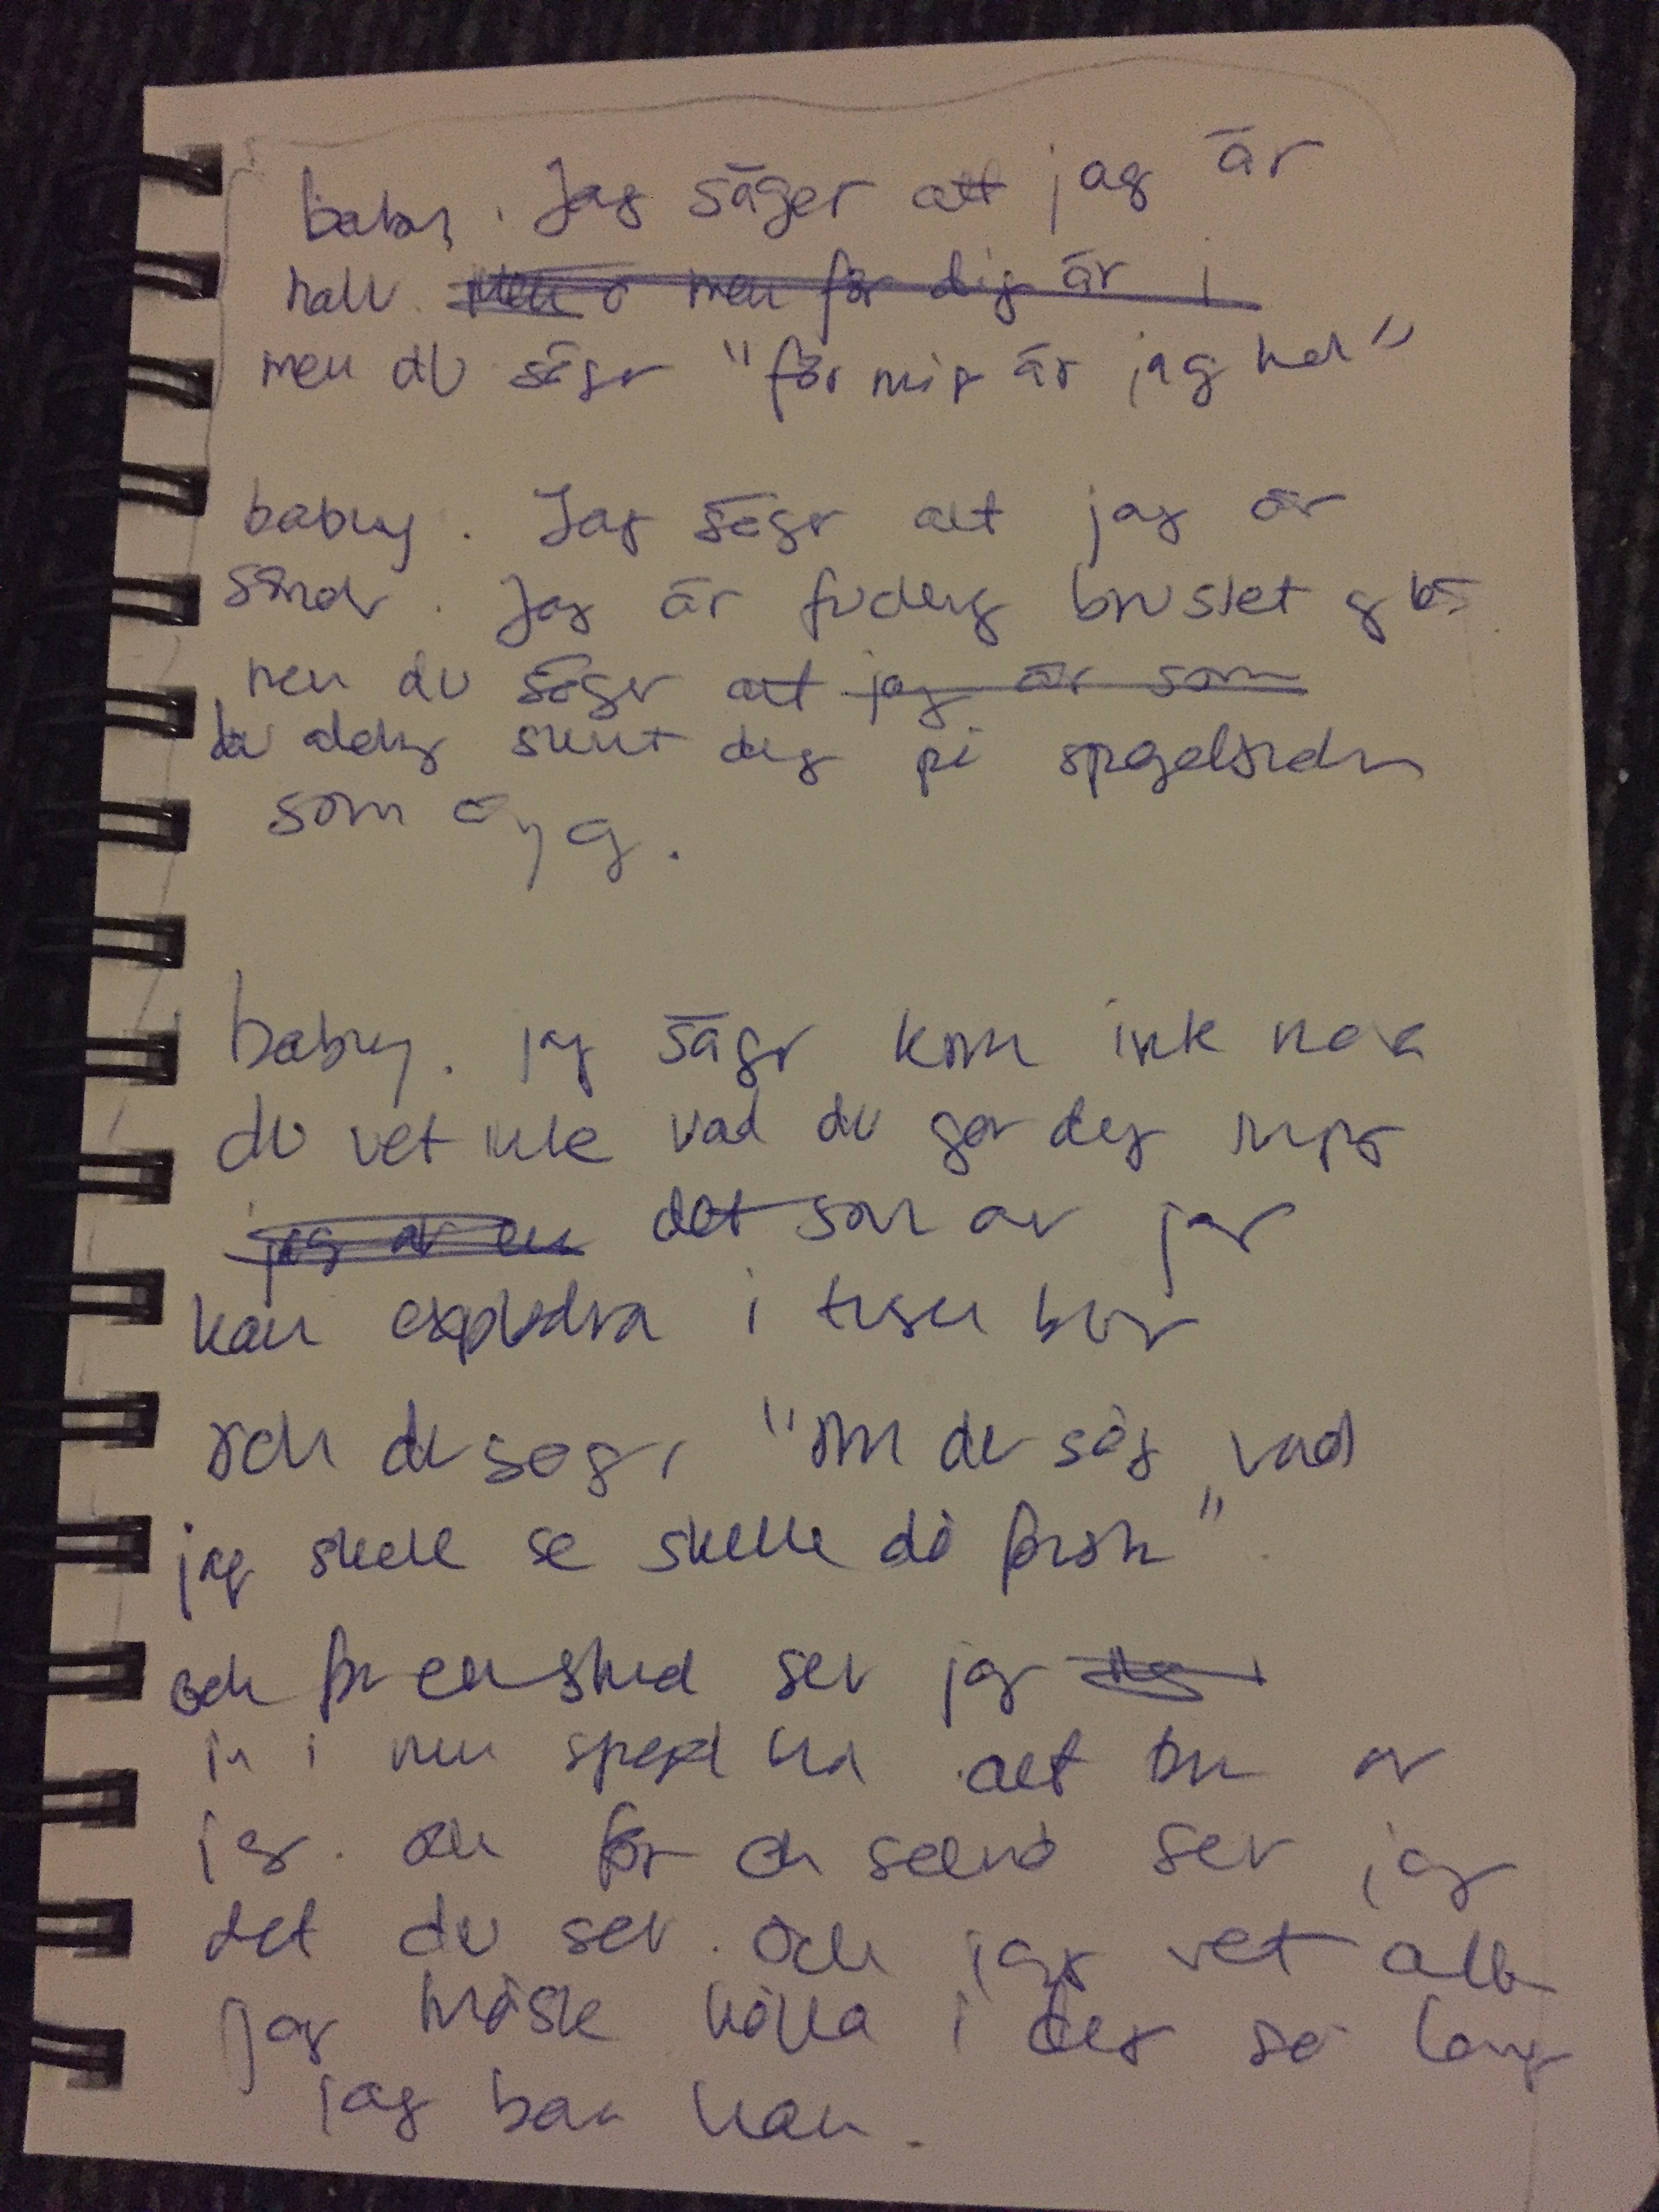 baby. Jag säger att jag är
halv. men för dig är j
men du säger "för mig är jag hel"
baby. Jag säger att jag är
sönder. Jag är
men du säger att jag är som
du aldrig sett dig på
som
baby. jag säger kom inte nära
du vet inte vad du ger dig in på
jag är en det som är jag
kan explodera i tusen bitar
och du säger "om du såg vad
jag skulle se skulle du förstå"
och för en stund ser jag
in i min spegel
jag. och för en sekund ser jag
det du ser. Och jag vet att
jag måste hålla i dig så länge
jag bara kan.